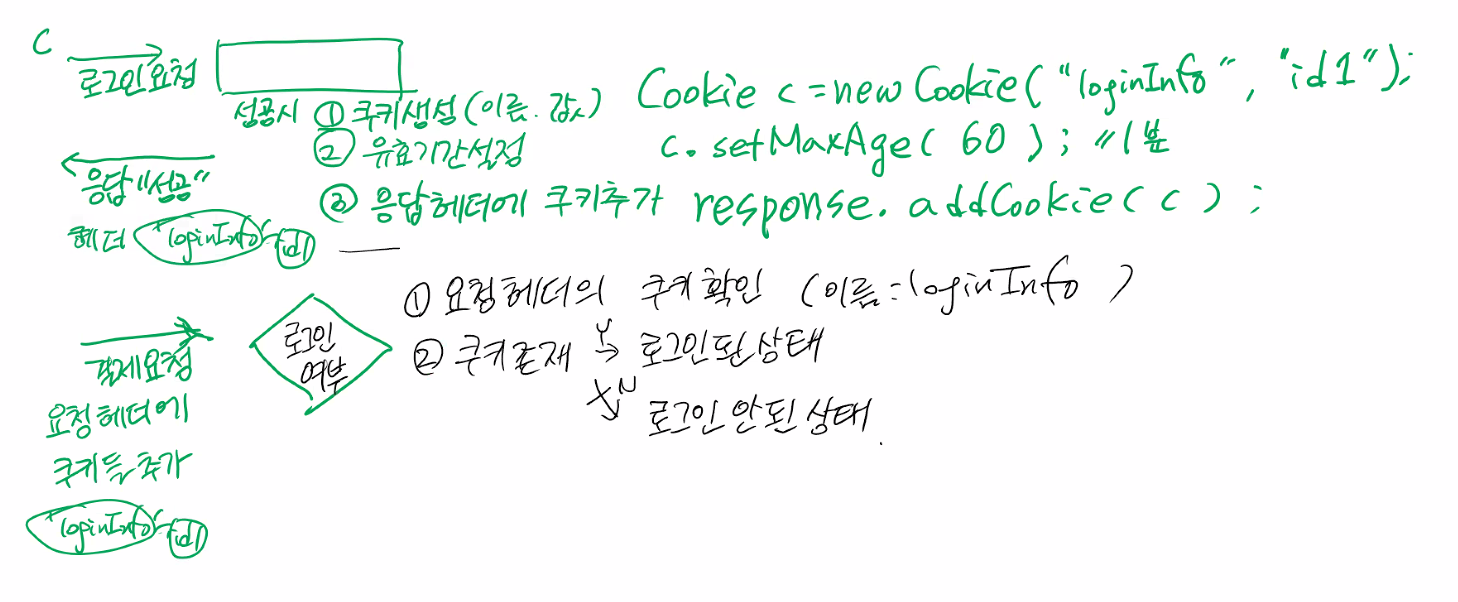 C
로그인 요청
성공시 ① 쿠키생성 (이름. 값) Cookie c = new Cookie("loginInfo", "id1");
② 유효기간설정 c.setMaxAge( 60 ); //1분
응답 "성공"
③ 응답헤더에 쿠키추가 response.addCookie( c );
헤더 "loginInfo" id1
① 요청헤더의 쿠키확인 (이름=loginInfo )
로그인
여부
② 쿠키존재 Y → 로그인된상태
N 로그인 안된 상태.
결제요청
요청헤더에
쿠키들추가
"loginInfo" id1